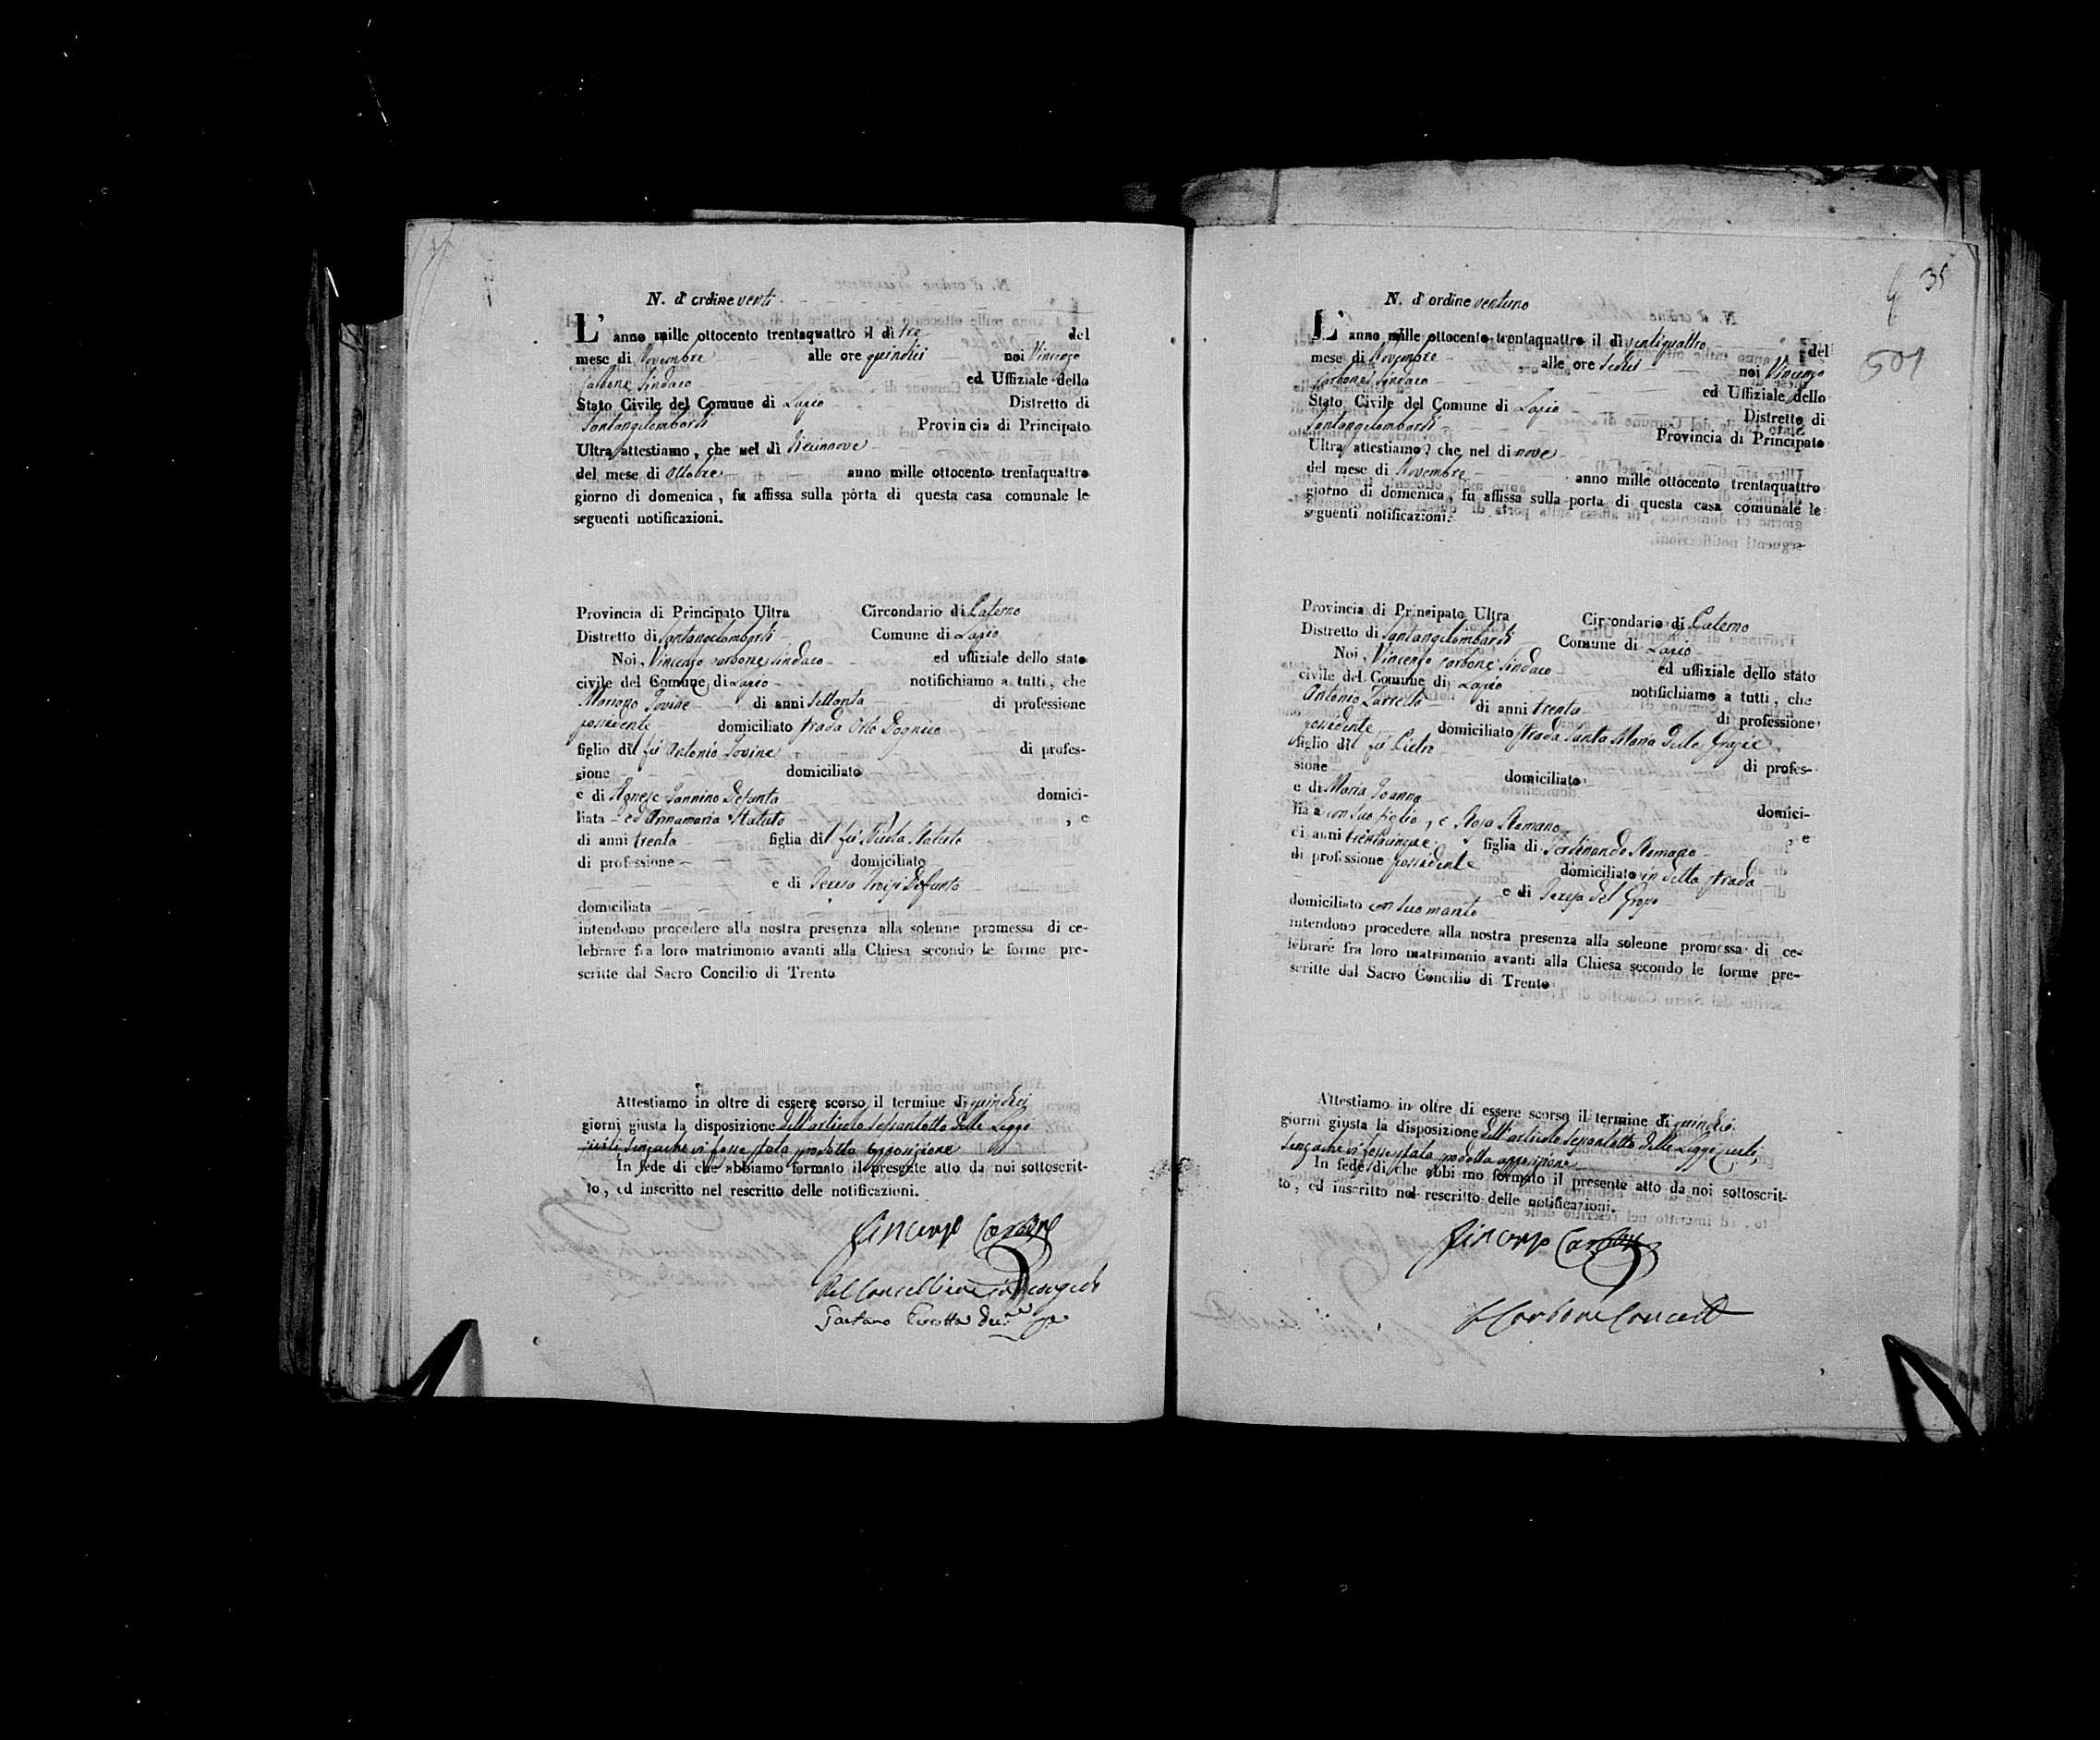 N. d'ordine venti
L'anno mille ottocento trentaquattro il dì tre del
mese di Novembre alle ore quindici noi Vincenzo
Carbone Sindaco ed Uffiziale dello
Stato Civile del Comune di Lapio Distretto di
Santangelombardi Provincia di Principato
Ultra attestiamo, che nel dì diecinnove
del mese di Ottobre anno mille ottocento trentaquattro
giorno di domenica, fu affissa sulla porta di questa casa comunale le
seguenti notificazioni.
Provincia di Principato Ultra Circondario di Paterno
Distretto di Santangelombardi Comune di Lapio
Noi, Vincenzo Carbone Sindaco ed uffiziale dello stato
civile del Comune di Lapio notifichiamo a tutti, che
Mariano Iovine di anni settanta di professione
possidente domiciliato strada Orto
figlio di fù Antonio Iovine di profes-
sione domiciliato
e di Agnese Iannino Defunta domici-
liata ed Annamaria Statuto , e
di anni trenta figlia di fù Nicola Statuto
di professione domiciliato
e di Teresa Defunta
domiciliata
intendono procedere alla nostra presenza alla solenne promessa di ce-
lebrare fra loro matrimonio avanti alla Chiesa secondo le forme pre-
scritte dal Sacro Concilio di Trento
Attestiamo in oltre di essere scorso il termine di quindici
giorni giusta la disposizione dell'articolo sessantotto delle Legge
civili senzache vi fosse stata prodotta opposizione
In fede di che abbiamo formato il presente atto da noi sottoscrit-
to, ed inscritto nel rescritto delle notificazioni.
Vincenzo Carbone
Gaetano
35
501
N. d'ordine ventuno
L'anno mille ottocento trentaquattro il dì ventiquattro del
mese di Novembre alle ore sedici noi Vincenzo
Carbone Sindaco ed Uffiziale dello
Stato Civile del Comune di Lapio Distretto di
Santangelombardi Provincia di Principato
Ultra attestiamo, che nel dì nove
del mese di Novembre anno mille ottocento trentaquattro
giorno di domenica, fu affissa sulla porta di questa casa comunale le
seguenti notificazioni.
Provincia di Principato Ultra Circondario di Paterno
Distretto di Santangelombardi Comune di Lapio
Noi, Vincenzo Carbone Sindaco ed uffiziale dello stato
civile del Comune di Lapio notifichiamo a tutti, che
Antonio di anni trenta di professione
possidente domiciliato strada Santa Maria delle Grazie
figlio di fù Pietro di profes-
sione domiciliato
e di Maria Ioanna domici-
liata con suo figlio, e Rosa Romano , e
di anni trentacinque figlia di Ferdinando Romano
di professione possidente domiciliato in detta strada
e di Teresa del Grosso
domiciliato con suo marito
intendono procedere alla nostra presenza alla solenne promessa di ce-
lebrare fra loro matrimonio avanti alla Chiesa secondo le forme pre-
scritte dal Sacro Concilio di Trento
Attestiamo in oltre di essere scorso il termine di quindici
giorni giusta la disposizione dell'articolo sessantotto delle Legge civili,
senzache vi fosse stata prodotta opposizione
In fede di che abbi mo formato il presente atto da noi sottoscrit-
to, ed inscritto nel rescritto delle notificazioni.
Vincenzo Carbone
Carbone Cancell